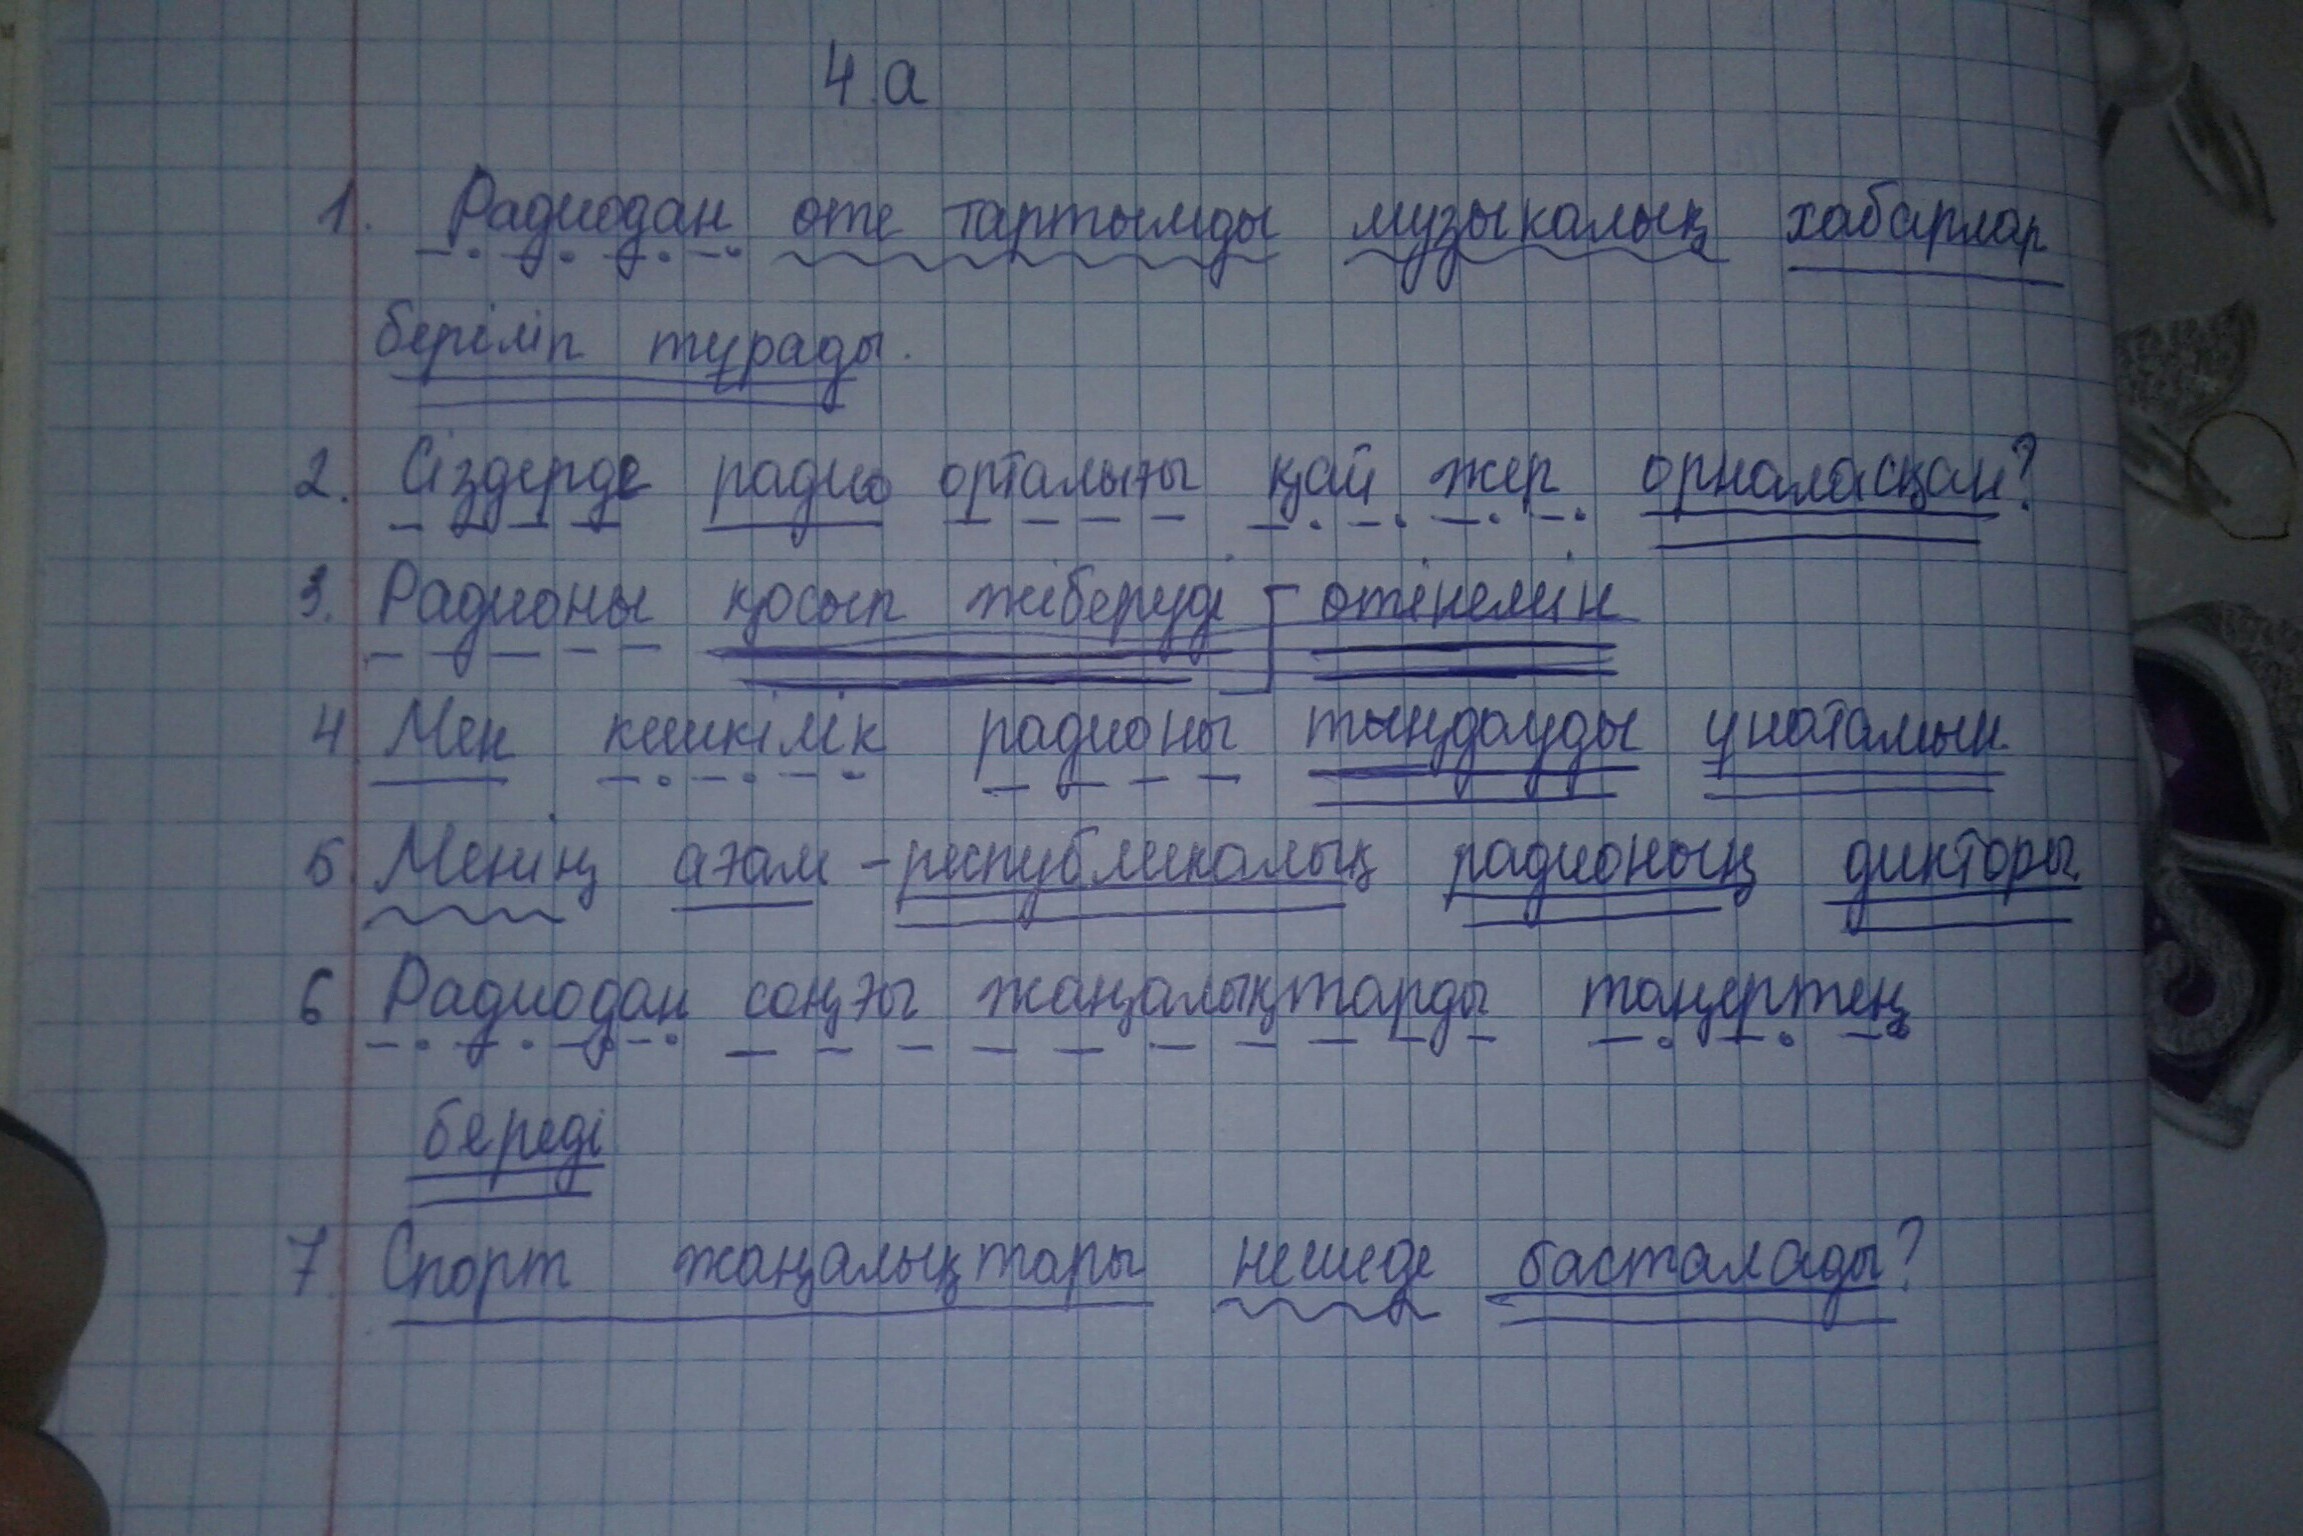 4.а
1. Радиодан өте тартымды музыкалық хабарлар
беріліп тұрады.
2. Сіздерде радио орталығы қай жер орналасқан?
3. Радионы қосып жіберуді өтінемін
4 Мен кешкілік радионы тыңдауды ұнатамын
5. Менің ағам – республикалық радионың дикторы
6 Радиодан соңғы жаңалықтарды таңертең
береді
7. Спорт жаңалықтары нешеде басталады?